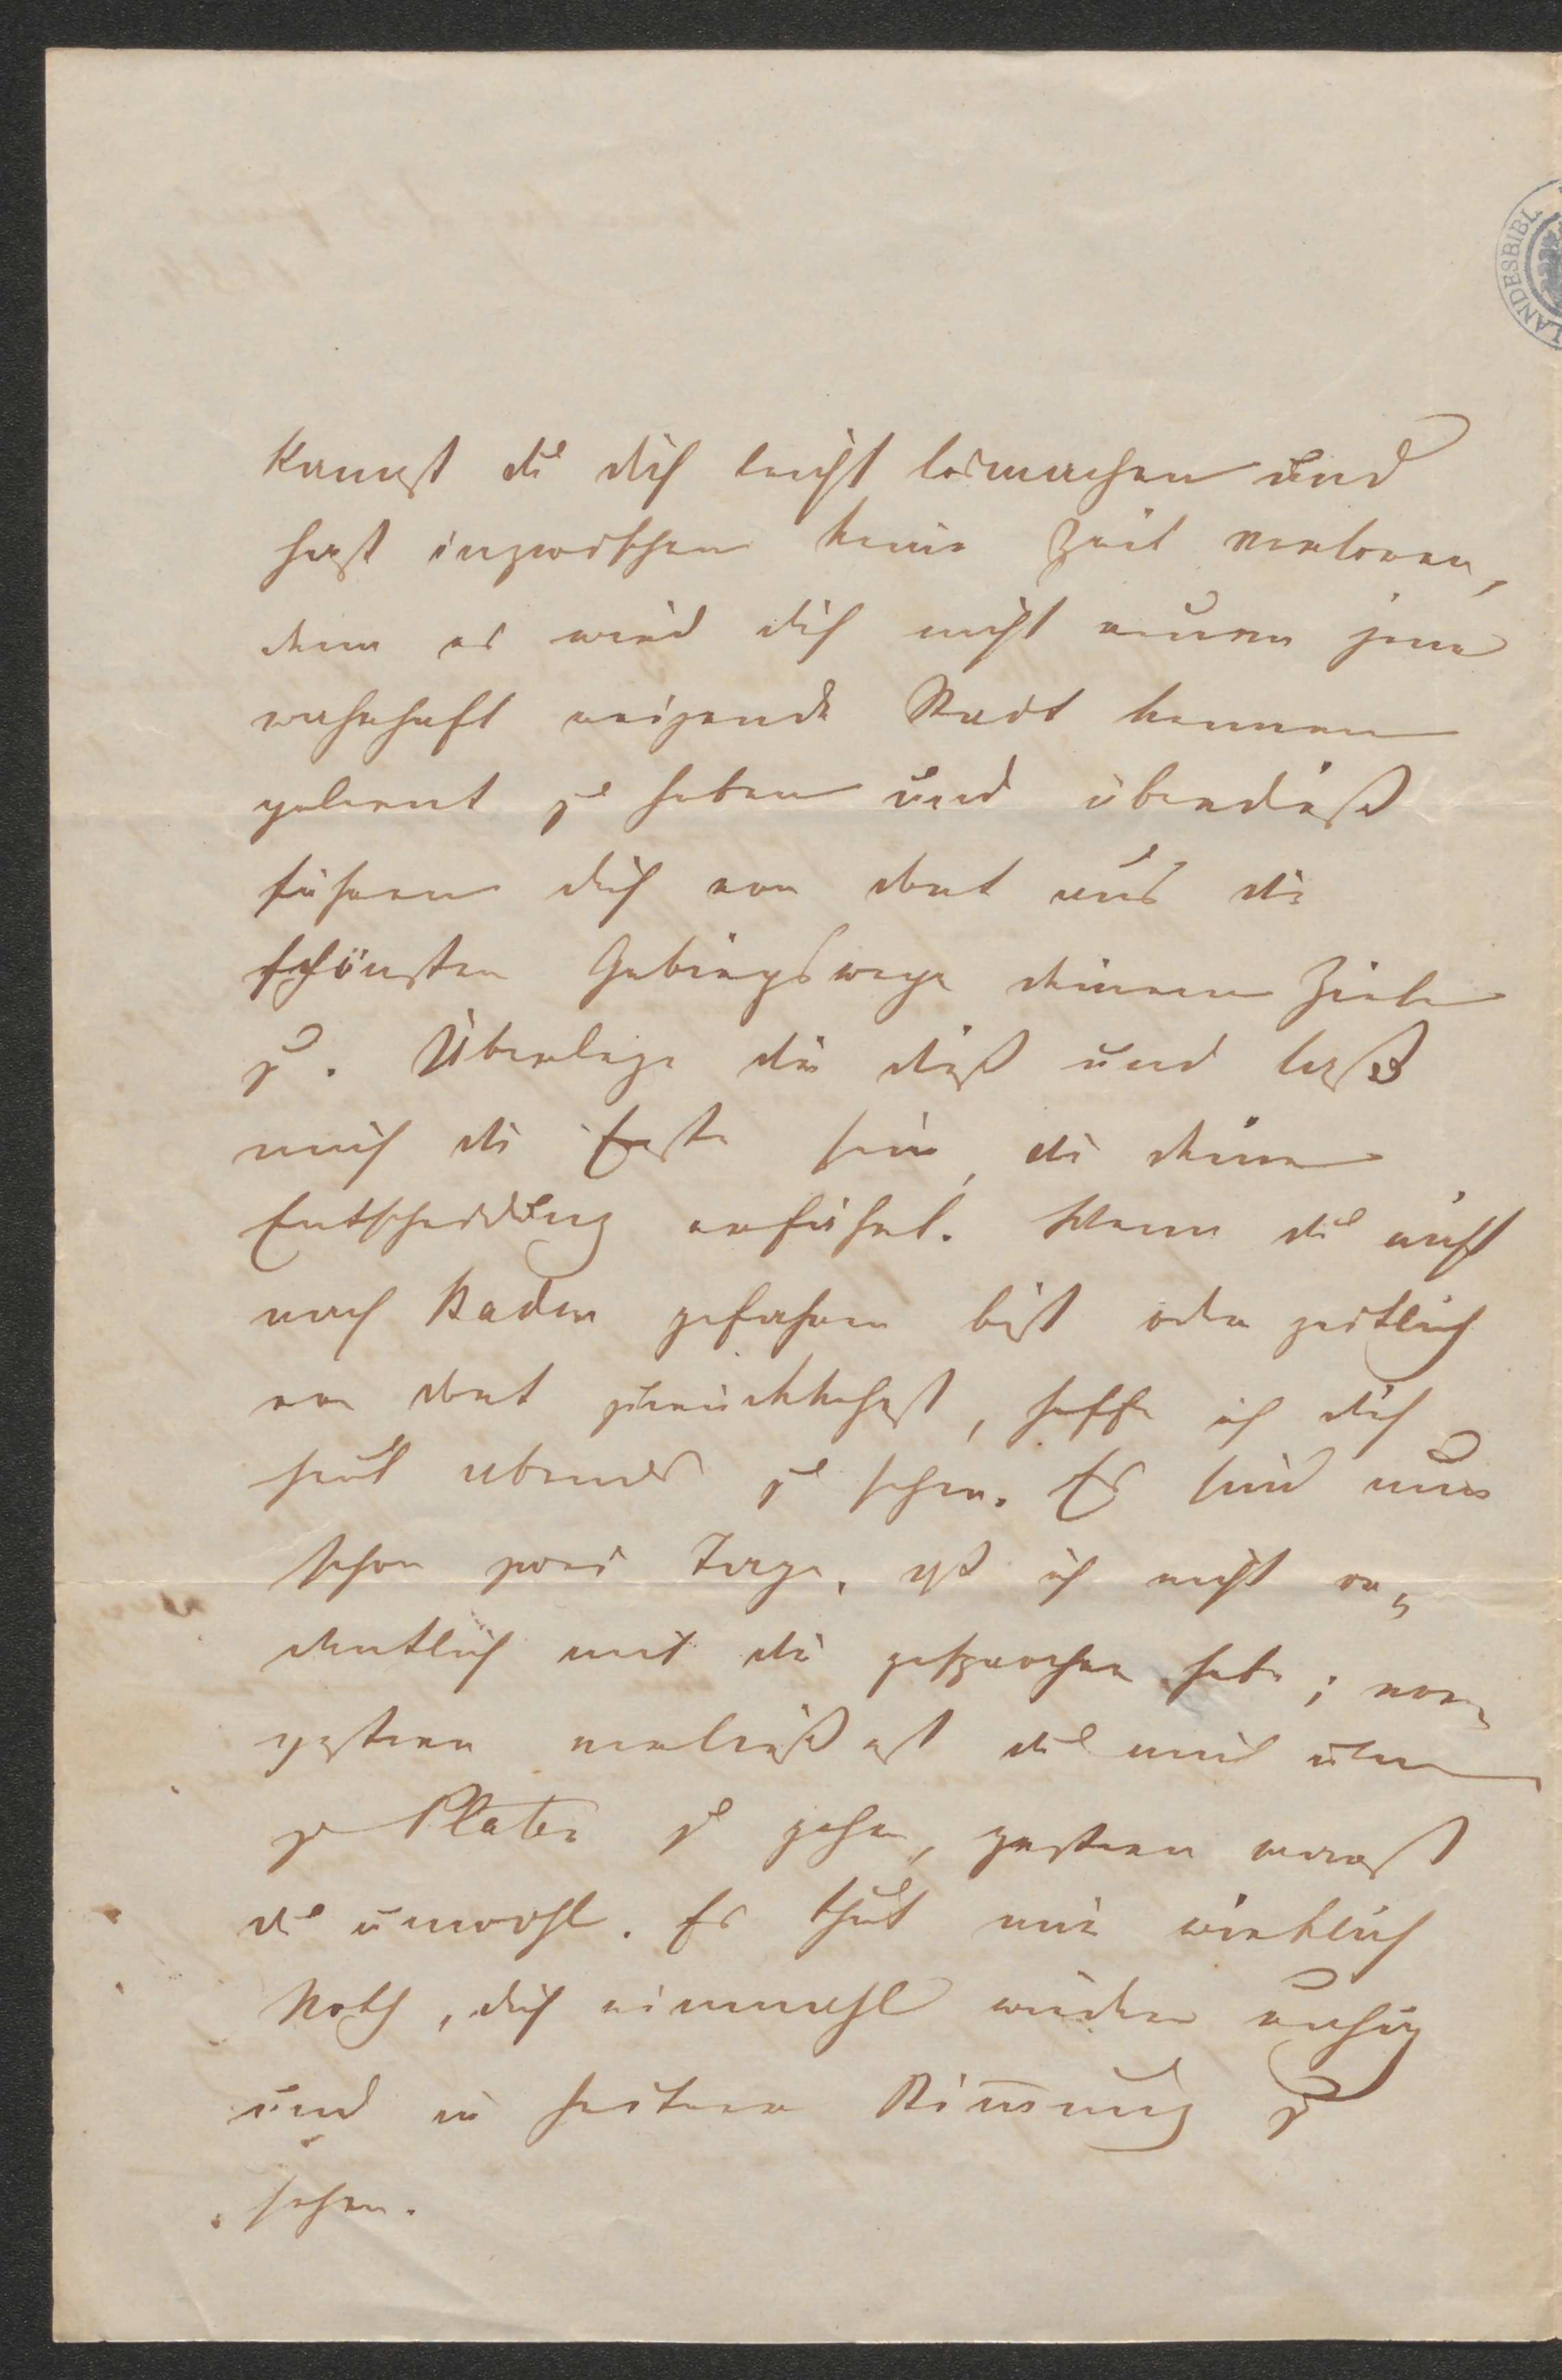 LANDESBIBL.
kannst du dich leicht losmachen und
hast inzwischen keine Zeit verloren,
denn es wird dich nicht reuen jene
wahrhaft reizende Stadt kennen
gelernt zu haben und überdieß
führen dich von dort aus die
schönsten Gebirgswege deinem Ziele
zu. Überlege dir dieß und laß
mich die Erste sein, die deine
Entscheidung erfährt. Wenn du nicht
nach Baden gefahren bist oder zeitlich
von dort zurückkehrst, hoffe ich dich
heut abends zu sehen. Es sind nun
schon zwei Tage, daß ich nicht or-
dentlich mit dir gesprochen habe; vor-
gestern verließest du mich um
zu Plater zu gehen, gestern warst
du unwohl. Es thut mir wirklich
Noth, dich einmahl wieder ruhig
und in heiterer Stimmung zu
sehen.